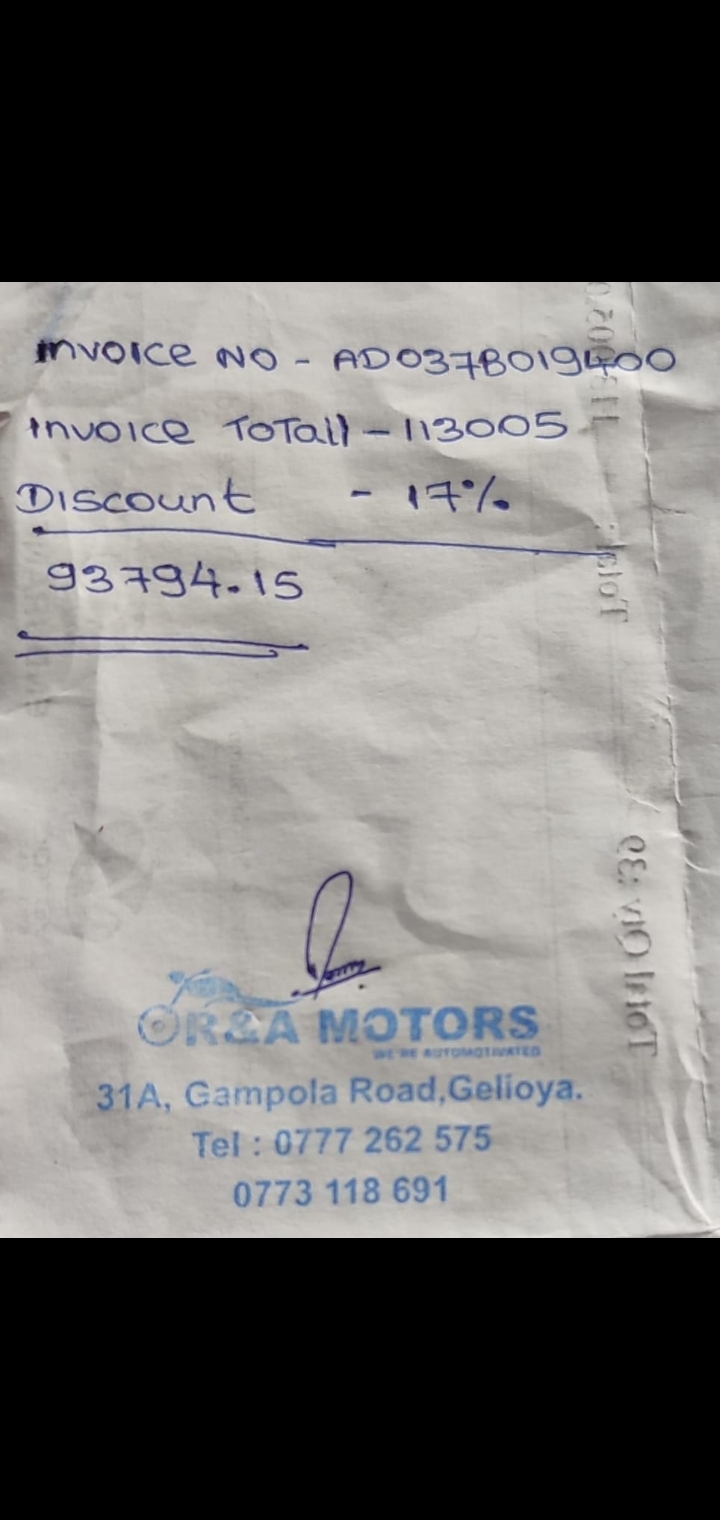 Invoice NO - AD037B019400
Invoice Totall - 113005
Discount - 17%
93794.15
R&A MOTORS
WE'RE AUTOMOTIVATED
31A, Gampola Road,Gelioya.
Tel : 0777 262 575
0773 118 691
Total Qty :39